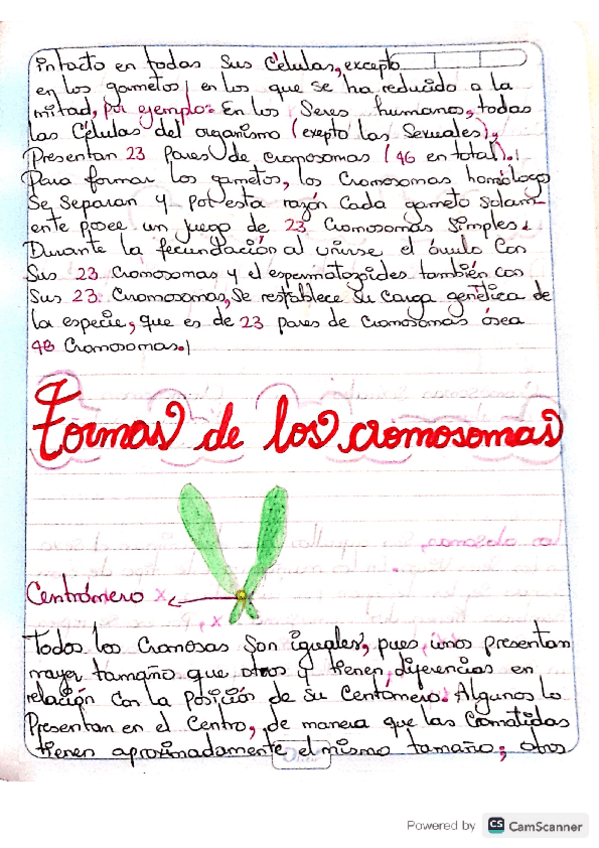 intacto en todas sus Células, excepto
en los gametos, en los que se ha reducido a la
mitad, por ejemplo: En los Seres humanos, todas
las Células del organismo (exepto las Sexuales),
Presentan 23 Pares de cromosomas (46 en total).
Para formar los gametos, los Cromosomas homólogo
Se Separan y por esta razón Cada gameto Solam-
ente posee un juego de 23 Cromosomas Simples.
Durante la fecundación al uñirse el óvulo Con
Sus 23 Cromosomas y el espermatozoides también con
Sus 23. Cromosomas, Se restablece Su Carga genética de
la especie, que es de 23 pares de Cromosomas ósea
46 Cromosomas.
Formas de los cromosomas
Centrómero
Todos los Cromosas Son iguales, pues, unos presentan
mayer tamaño que otros y tienen diferencias en
relación Con la Posición de Su Centómero. Algunos lo
Presentan en el Centro, de manera que las Cromatidas
tienen aproximadamente el mismo tamaño; otros
Powered by CS CamScanner